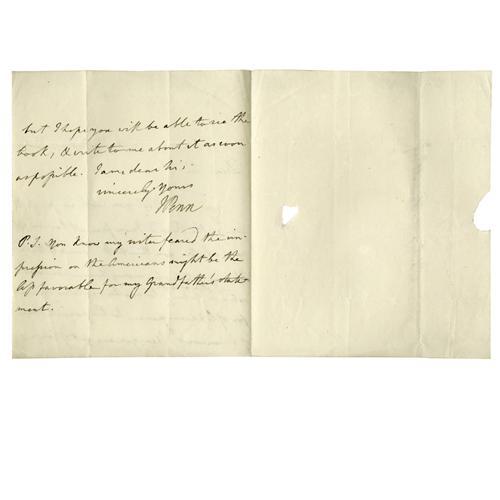 but I hope you will be able to see the
book, & write to me about it as soon
as possible. I am dear Sir,
sincerely yours
J Penn
P.S. You know my sister feared the im-
pression on the Americans might be the
less favorable for my Grandfather's state-
ment.